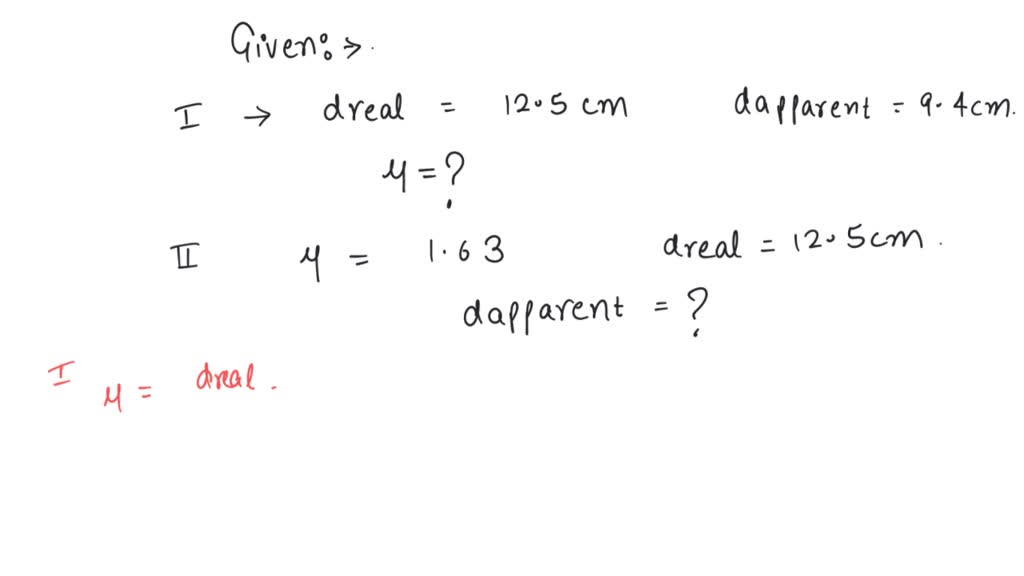 Given:→.
I → dreal = 12.5 cm dapparent = 9.4cm.
μ = ?
II μ = 1.63 dreal = 12.5cm.
dapparent = ?
I μ = dreal.